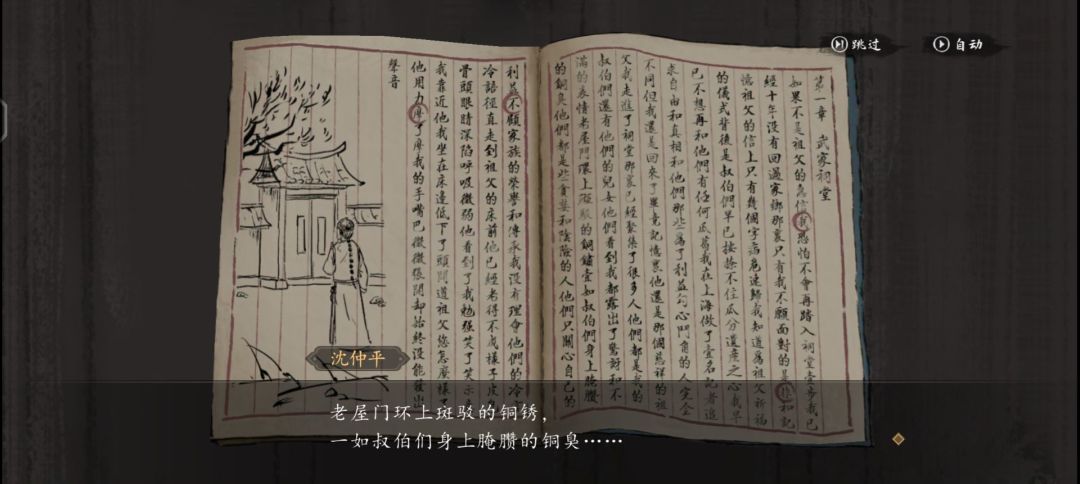 跳过
自动
第一章 武家祠堂
如果不是祖父的急信我恐怕不會再踏入祠堂壹步我已
經十年沒有回過家鄉那裏只有我不願面對的是和記
憶祖父的信上只有幾個字病危速歸我知道為祖父祈福
的儀式背後是叔伯們早已按捺不住瓜分遺產之心我早
已不想再和他們有任何瓜葛我在上海做了壹名記者追
求自由和真相和他們那些為了利益勾心鬥角的人完全
不同但我還是回來了畢竟記憶裏他還是那個慈祥的祖
父我走進了祠堂那裏已經聚集了很多人他們都是我的
叔伯們還有他們的兒女他們看到我都露出了驚訝和不
滿的表情老屋門環上斑駁的銅鏽壹如叔伯們身上腌臢
的銅臭他們都是些貪婪和陰險的人他們只關心自己的
利益不顧家族的榮譽和傳承我沒有理會他們的冷
冷語徑直走到祖父的床前他已經老得不成樣子皮
骨頭眼睛深陷呼吸微弱他看到了我勉強笑了笑示
我靠近他我坐在床邊低下了頭問道祖父您怎麼樣
他用力摩了摩我的手嘴巴微微張開卻始終沒能發出
聲音
沈仲平
老屋门环上斑驳的铜锈，
一如叔伯们身上腌臜的铜臭……